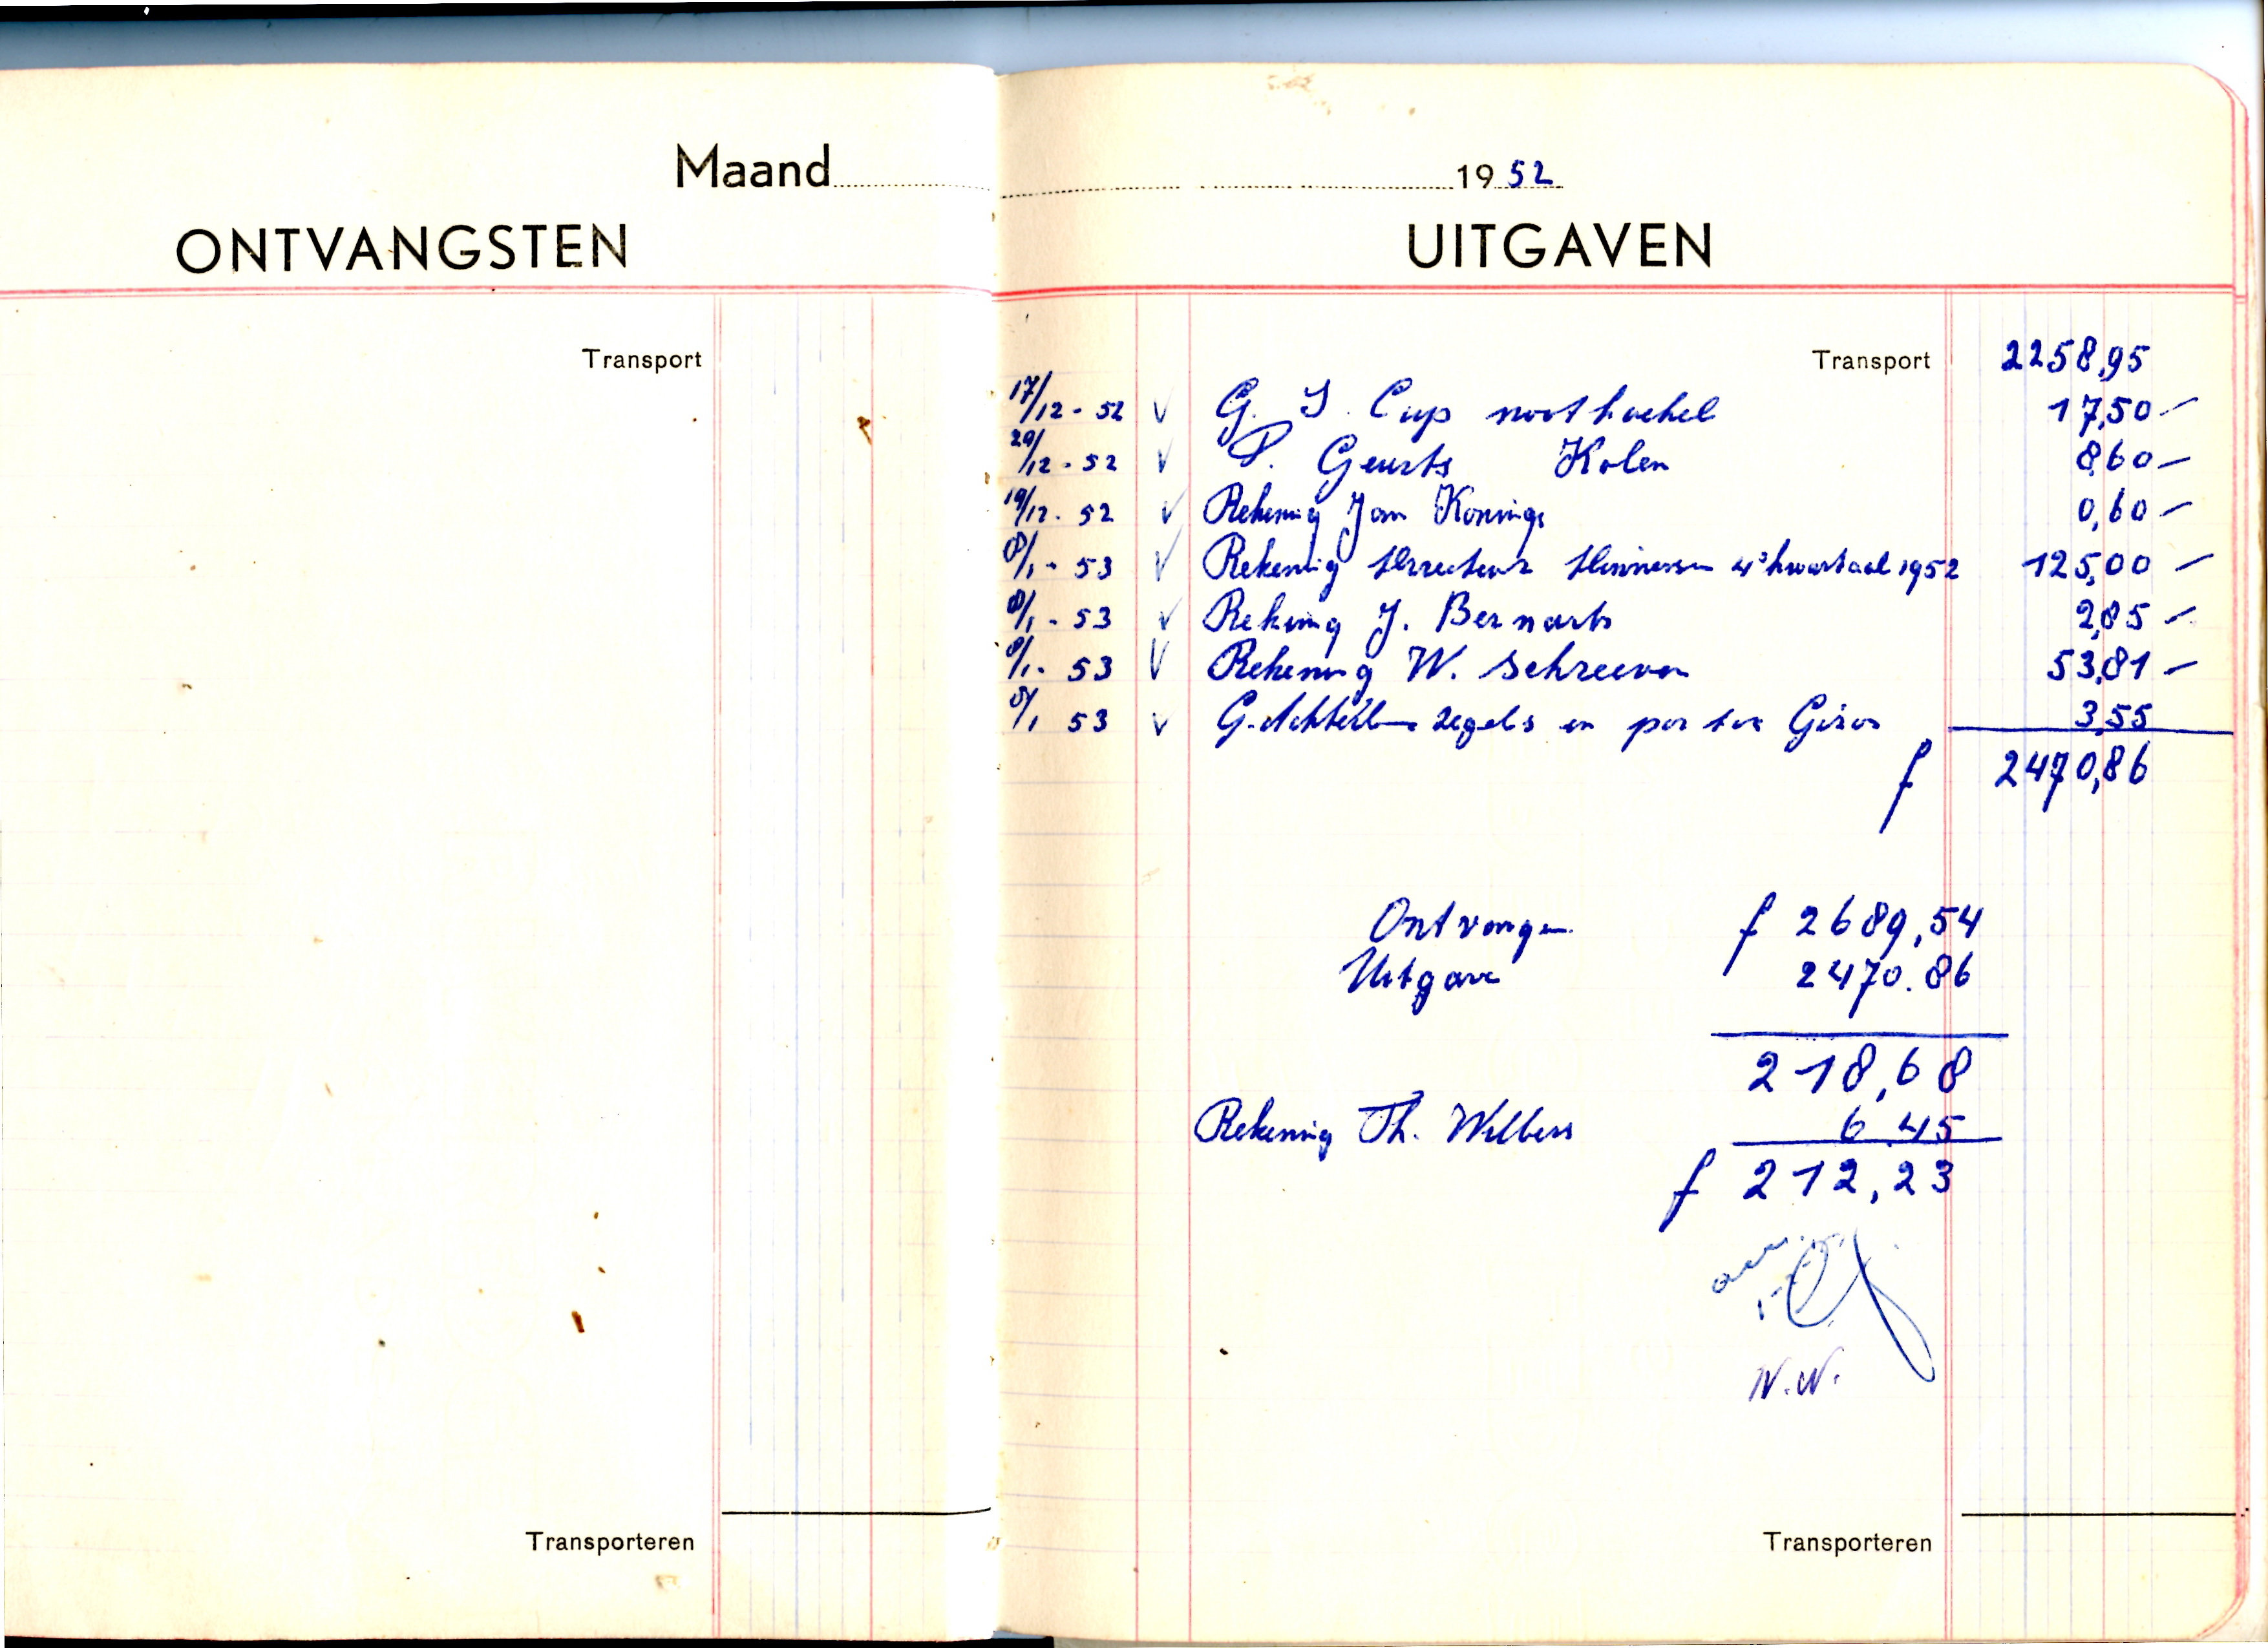 Maand
1952
ONTVANGSTEN
UITGAVEN
Transport
Transport 2258,95
17/12 - 52 V G. J. Cup noothoekel 17,50 —
29/12 - 52 V P. Geurts Kolen 8,60 —
19/12 - 52 V Rekening Jan Konings 0,60 —
8/1 - 53 V Rekening 4e kwartaal 1952 125,00 —
8/1 - 53 V Rekening J. Bernarts 2,85 —
8/1 - 53 V Rekening W. Schreeven 53,81 —
8/1 53 V G. zegels en porton Giros 3,55
f 2470,86
Ontvangen f 2689,54
Uitgave 2470.86
218,68
Rekening Th. Wilbers 6.45
f 212,23
W.W.
Transporteren
Transporteren